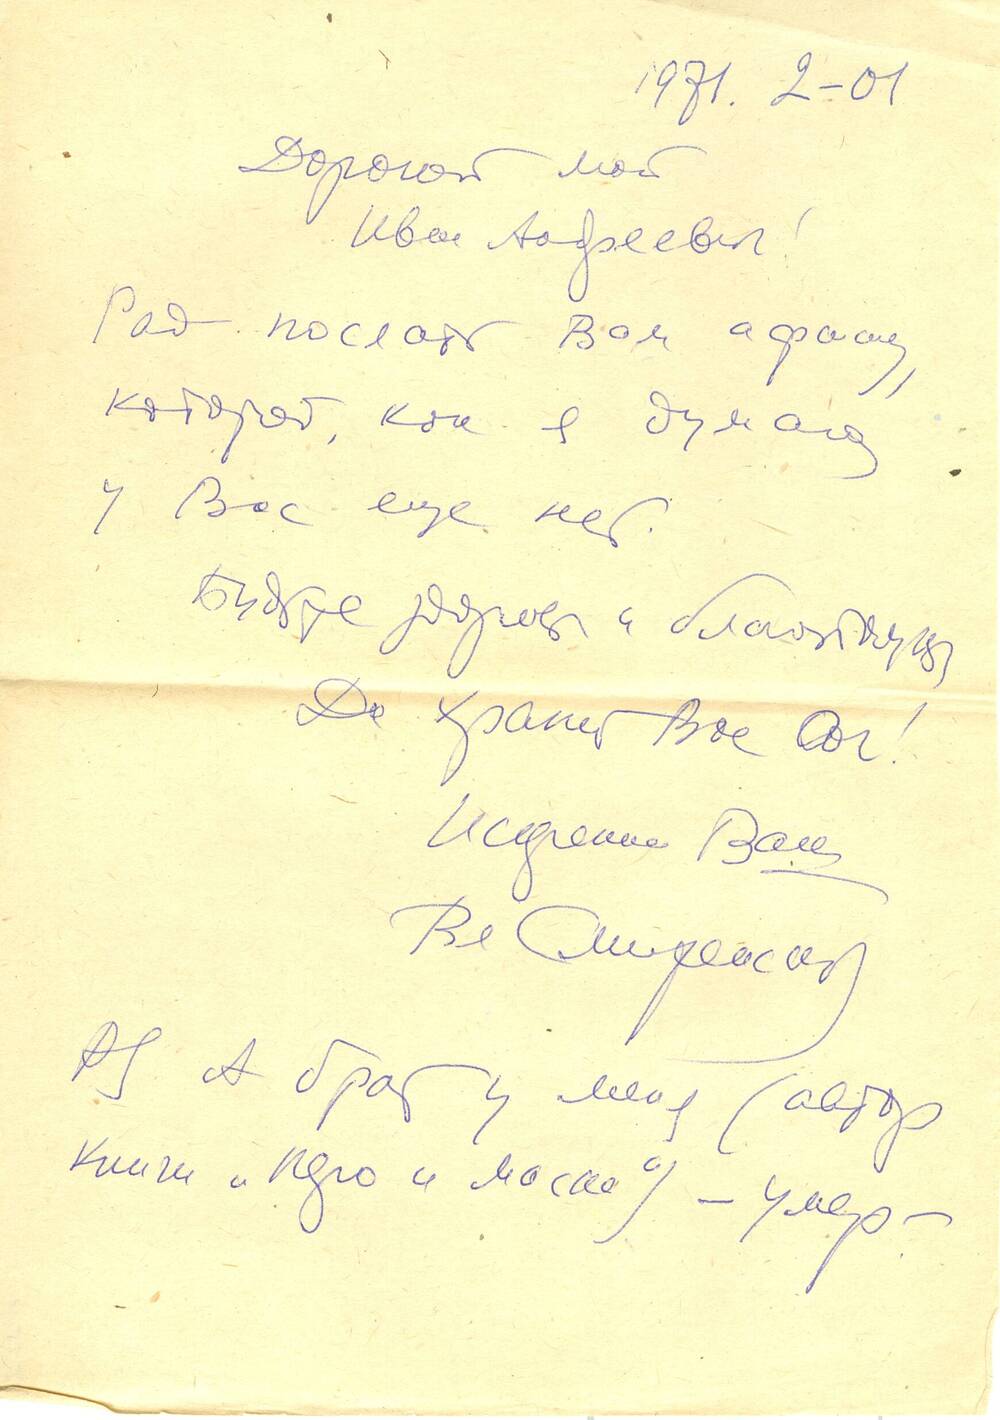 1971. 2-01
Дорогой мой
Иван Андреевич!
Рад послать Вам афишу,
которой, как я думаю
у Вас еще нет.
Будьте здоровы и благополучны
Да хранит Вас Бог!
Искренне Ваш
Вл Смиренский
PS А брат у меня (автор
книги „Перо и маска“) – умер –